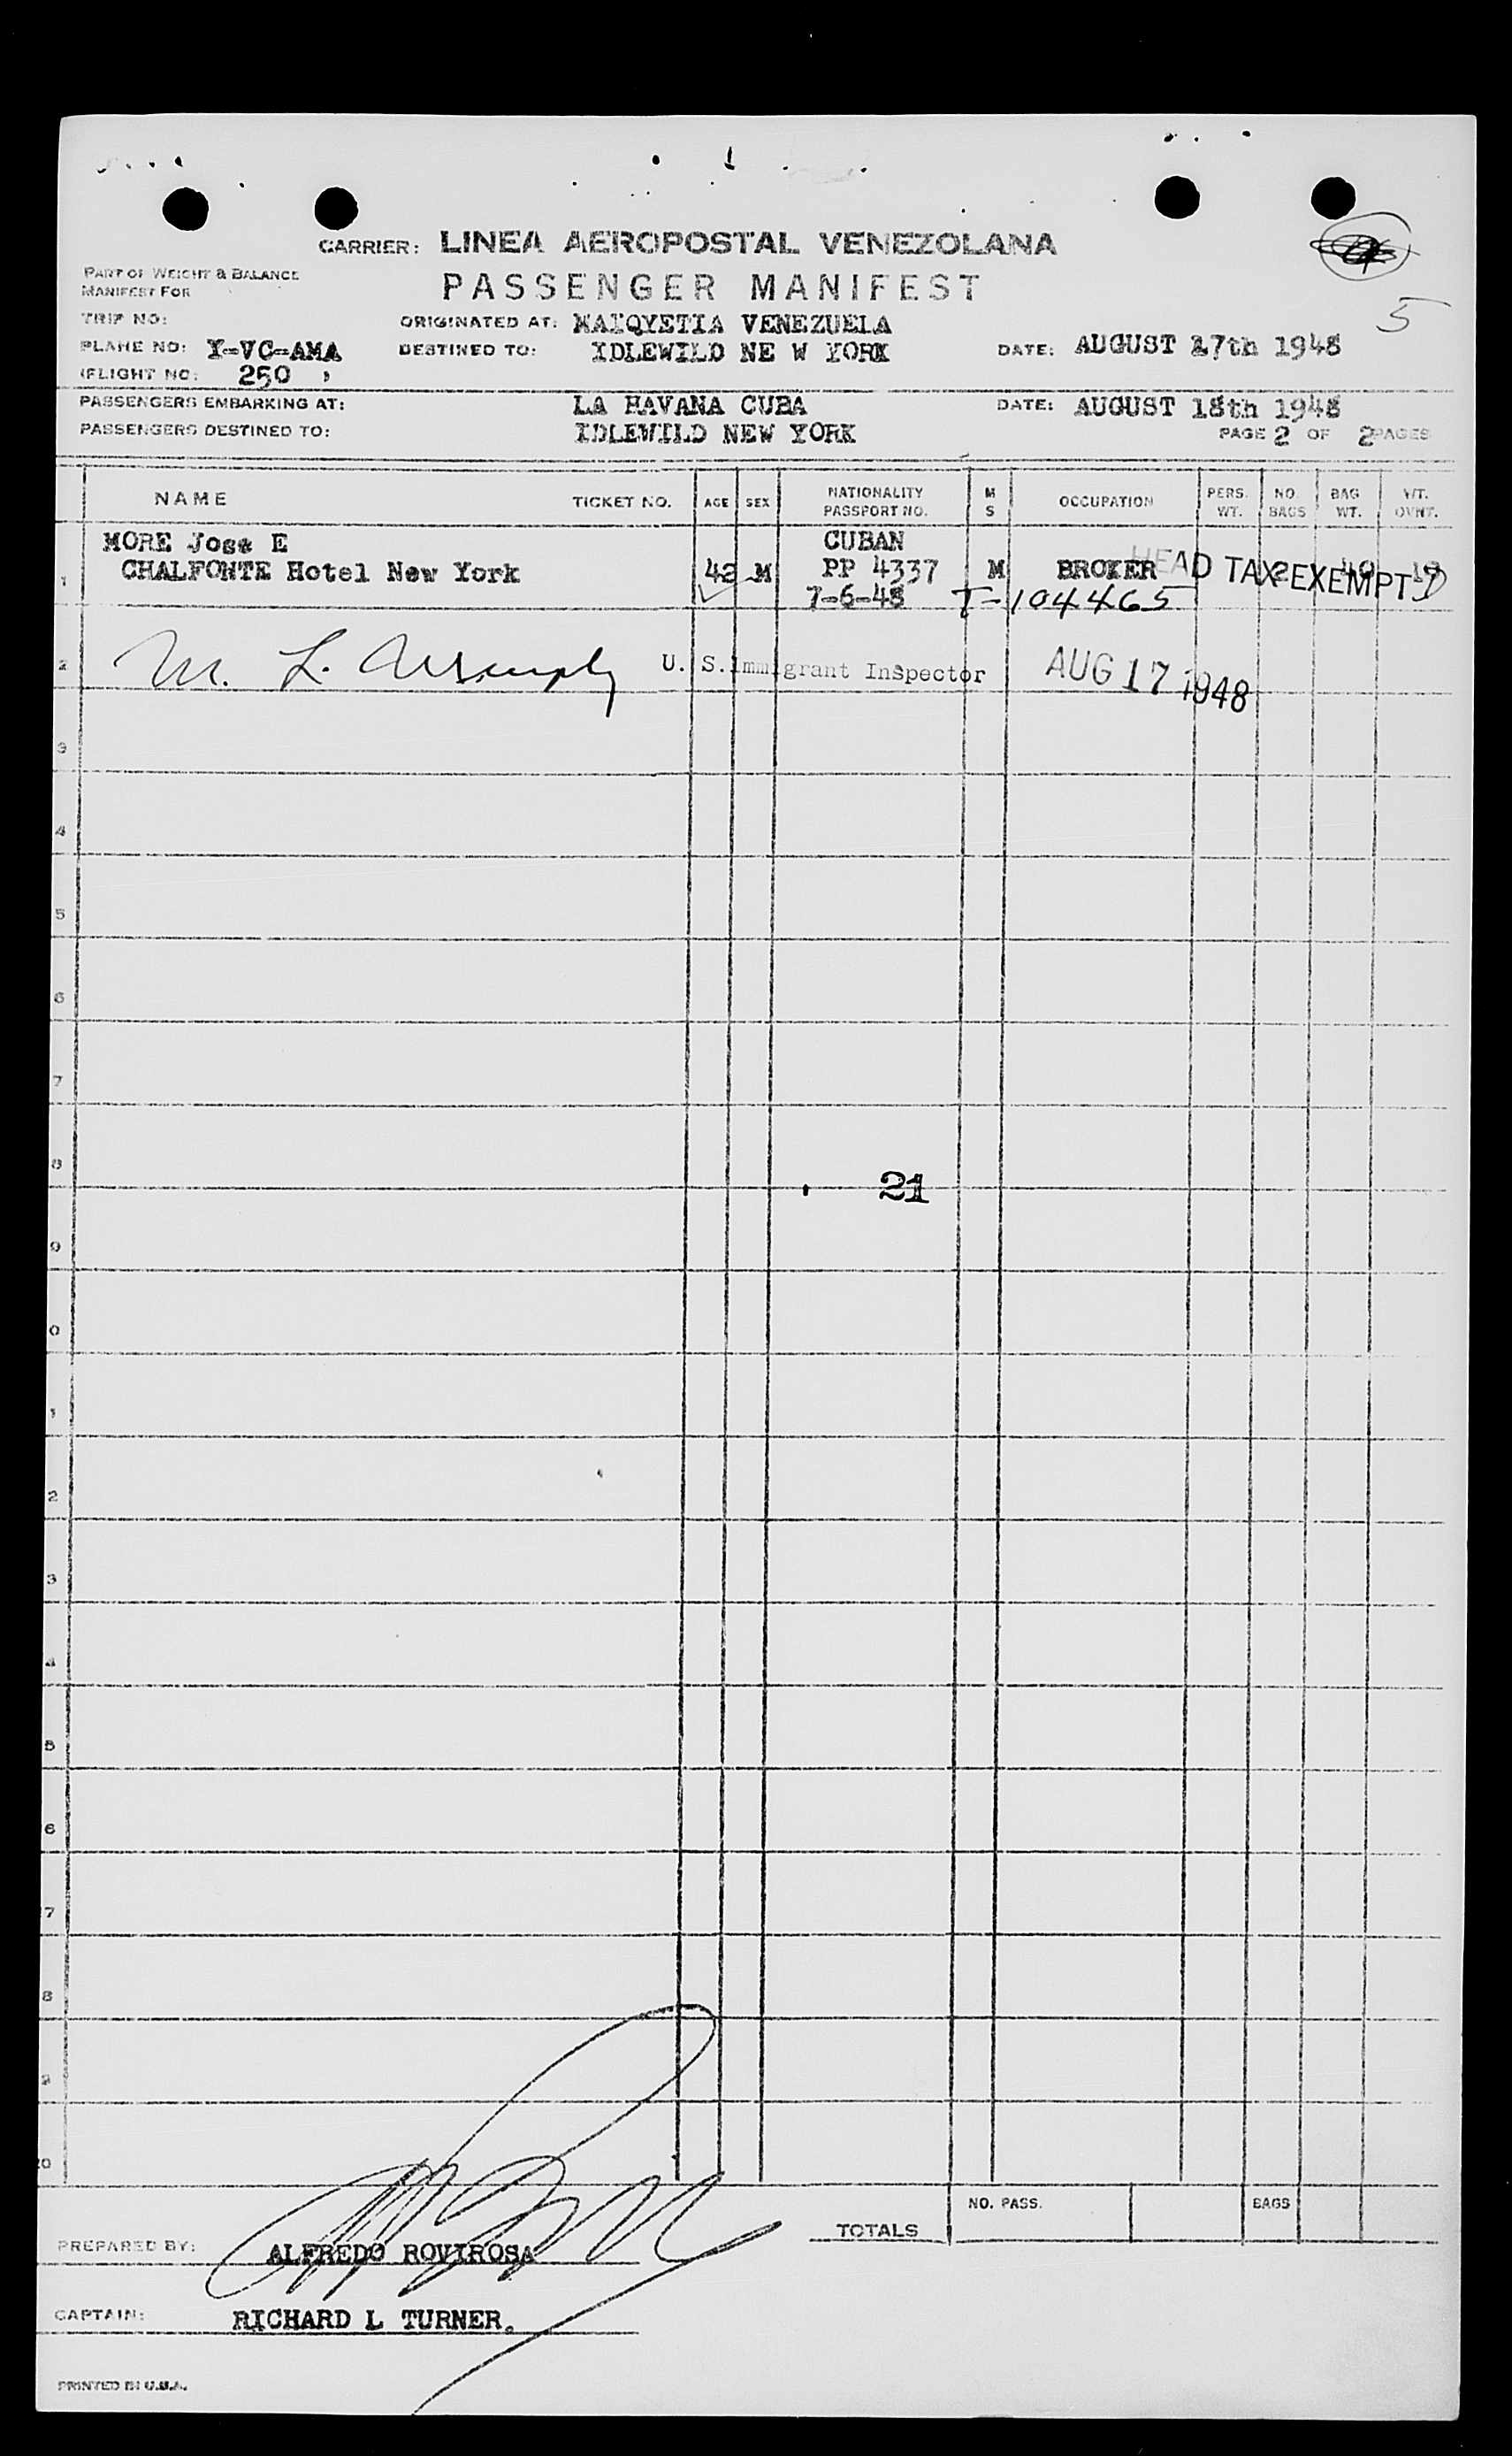 CARRIER: LINEA AEROPOSTAL VENEZOLANA
PART OF WEIGHT & BALANCE
MANIFEST FOR
PASSENGER MANIFEST
5
TRIP NO:
ORIGINATED AT: MAIQYETIA VENEZUELA
PLANE NO: Y-VC-AMA
DESTINED TO: IDLEWILD NE W YORK
DATE: AUGUST 17th 1948
FLIGHT NO: 250
PASSENGERS EMBARKING AT: LA HAVANA CUBA
DATE: AUGUST 18th 1948
PASSENGERS DESTINED TO: IDLEWILD NEW YORK
PAGE 2 OF 2 PAGES
NAME TICKET NO. AGE SEX NATIONALITY PASSPORT NO. M S OCCUPATION PERS. WT. NO. BAGS BAG WT. WT. OVWT.
MORE Jose E CUBAN
1 CHALFONTE Hotel New York 42 M PP 4337 M BROKER 2 40 19
HEAD TAX EXEMPT
7-6-48 T-104465
2 M. L. U. S. Immigrant Inspector AUG 17 1948
3
4
5
6
7
8
21
9
0
1
2
3
4
5
6
7
8
9
20
NO. PASS. BAGS
TOTALS
PREPARED BY: ALFREDO ROVIROSA
CAPTAIN: RICHARD L TURNER.
PRINTED IN U.S.A.